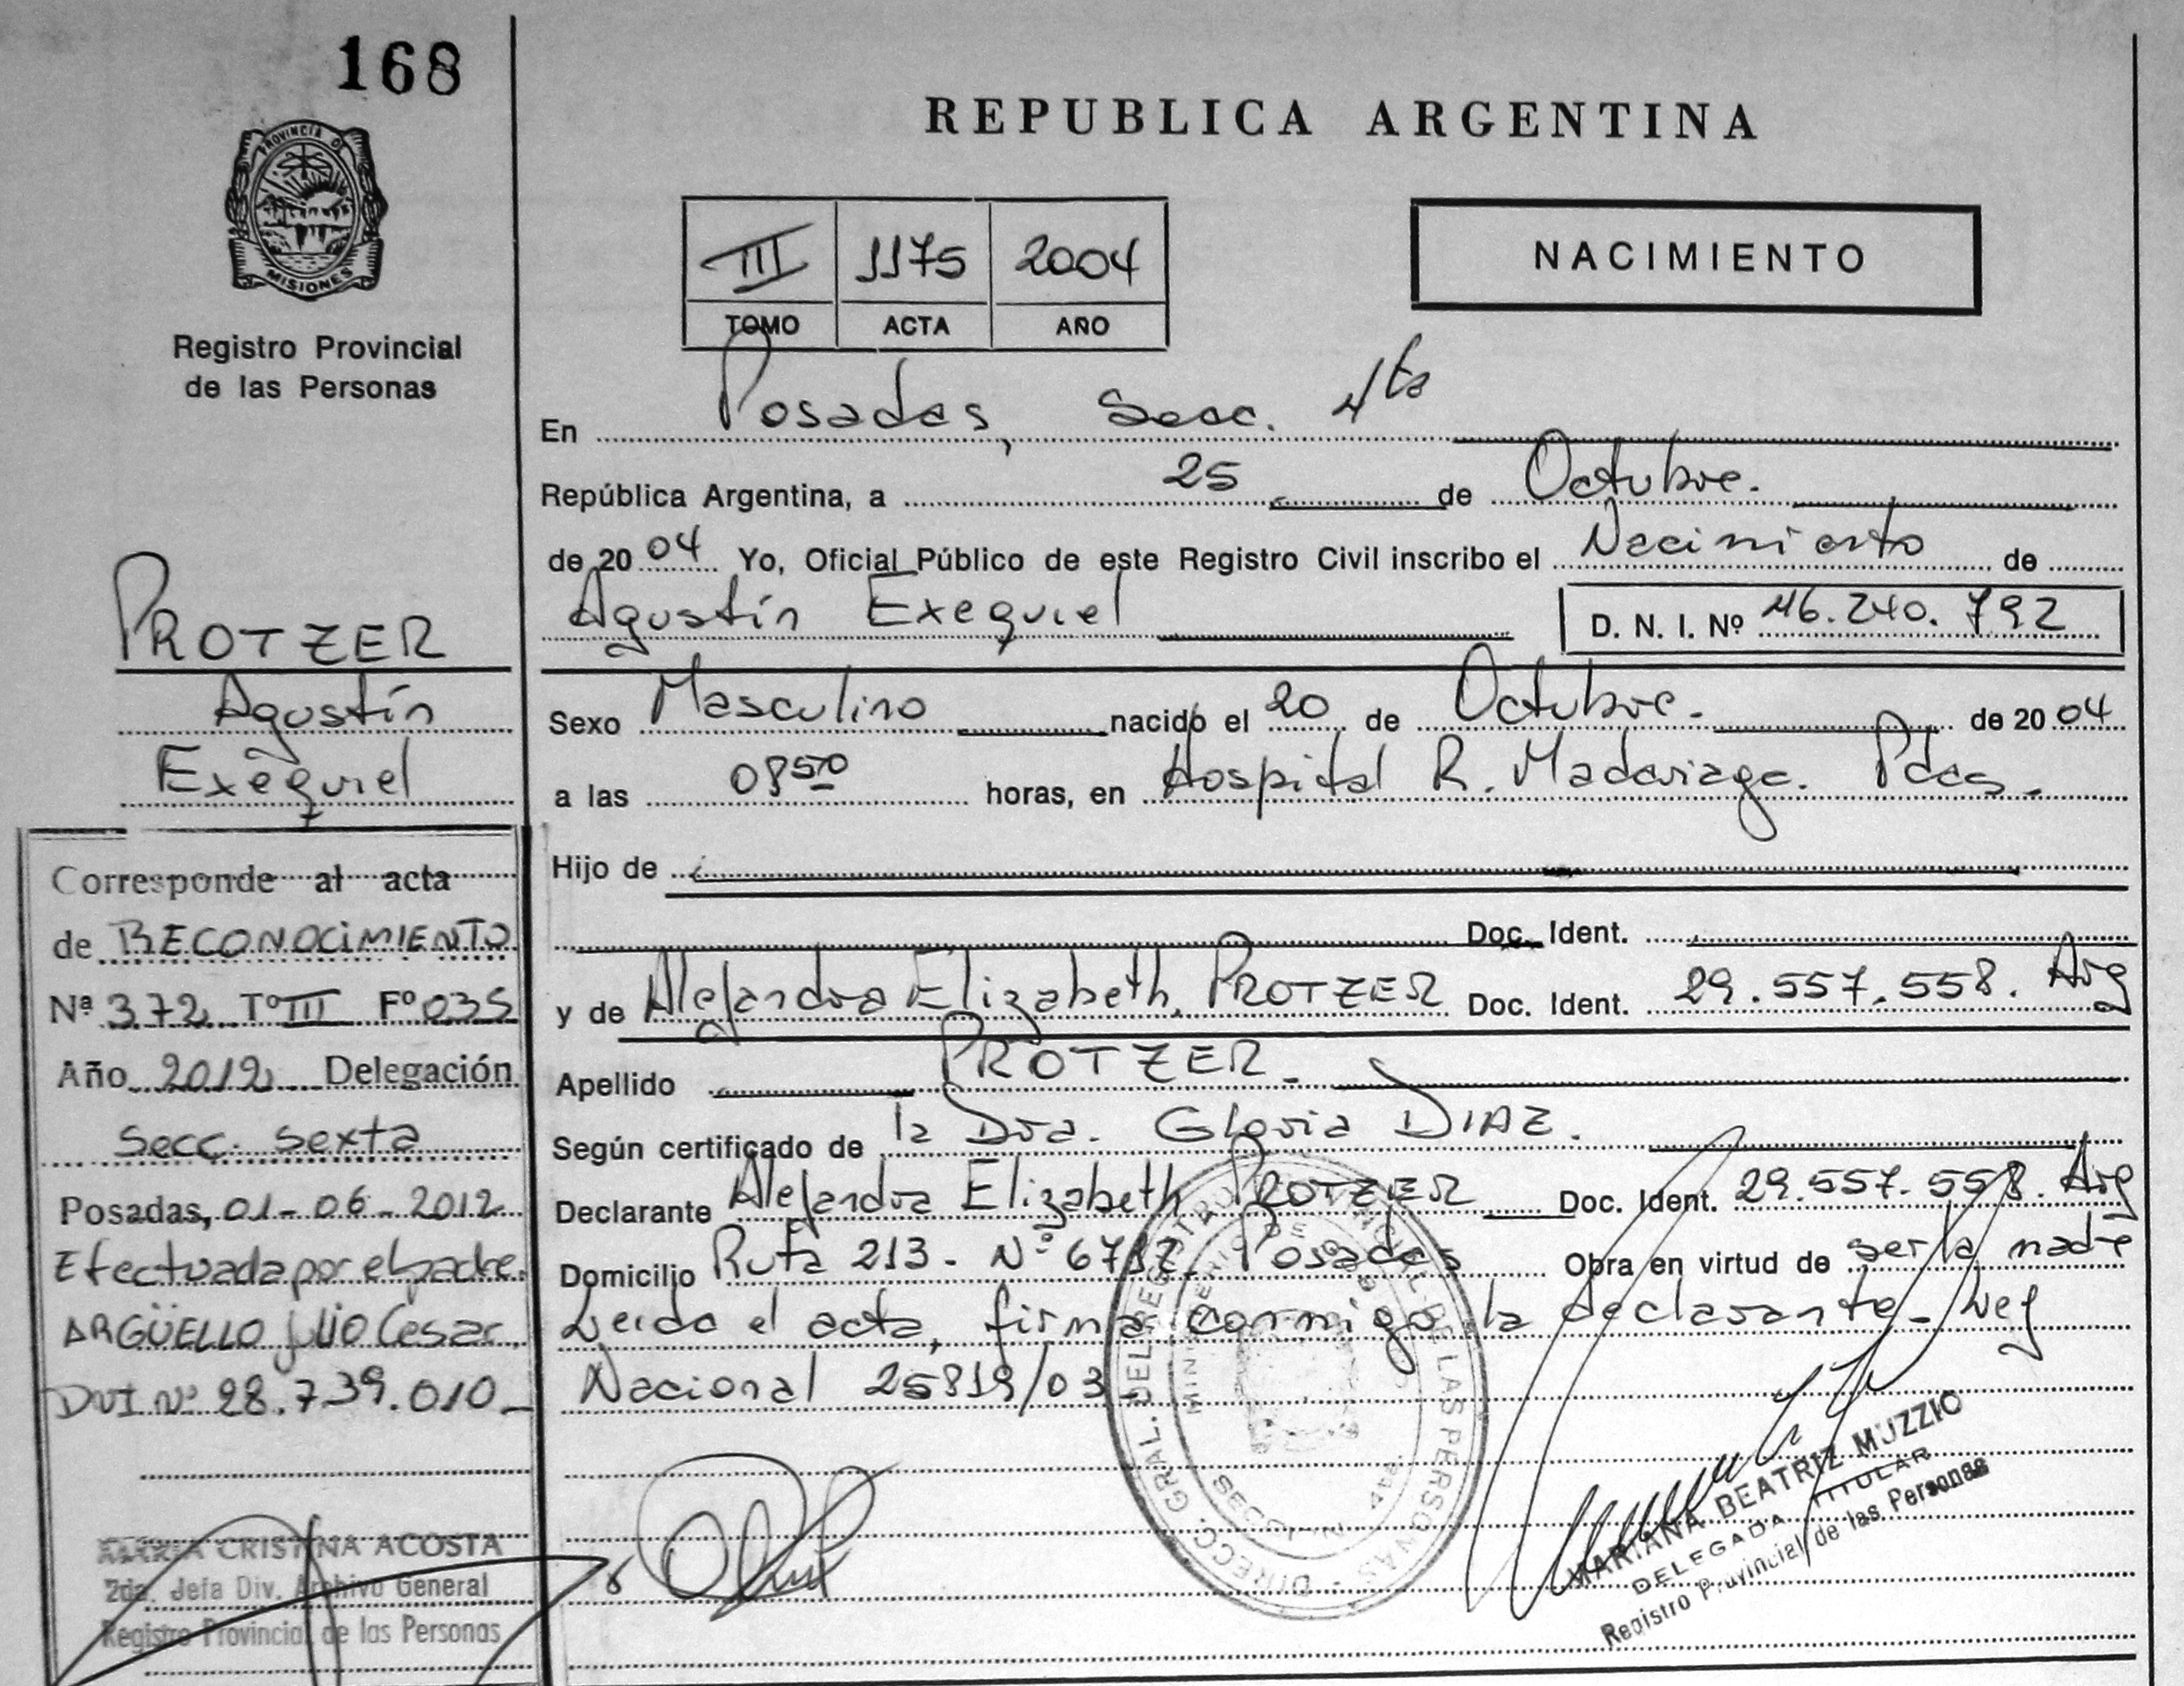 168
PROVINCIA DE
MISIONES
Registro Provincial
de las Personas
PROTZER
Agustín
Exequiel
Corresponde al acta
de RECONOCIMIENTO
Nª 372 Tº III Fº 035
Año 2012 Delegación
Secc. Sexta
Posadas, 01-06-2012
Efectuada por el padre.
ARGÜELLO Julio Cesar
DNI Nº 28.739.010_
MARIA CRISTINA ACOSTA
2da. Jefa Div. Archivo General
Registro Provincial de las Personas
REPUBLICA ARGENTINA
III 1175 2004
TOMO ACTA AÑO
NACIMIENTO
En Posadas, Secc. 4ta
República Argentina, a 25 de Octubre.
de 2004 Yo, Oficial Público de este Registro Civil inscribo el Nacimiento de
Agustín Exequiel D. N. I. Nº 46.240.792
Sexo Masculino nacido el 20 de Octubre. de 2004
a las 0850 horas, en Hospital R. Madariaga. Pdas.
Hijo de
Doc. Ident.
y de Alejandra Elizabeth, PROTZER Doc. Ident. 29.557.558. Arg
Apellido PROTZER_
Según certificado de la Dra. Gloria DIAZ.
Declarante Alejandra Elizabeth PROTZER Doc. Ident. 29.557.558. Arg
Domicilio Ruta 213 - Nº Posadas Obra en virtud de ser la madre
Leida el acta, firma conmigo la declarante_ Ley
Nacional 25819/03.
DIRECC. GRAL. DEL REGISTRO PROVINCIAL DE LAS PERSONAS
MINISTERIO DE
SECCION 4ta.
MARIANA BEATRIZ MUZZIO
DELEGADA TITULAR
Registro Provincial de las Personas